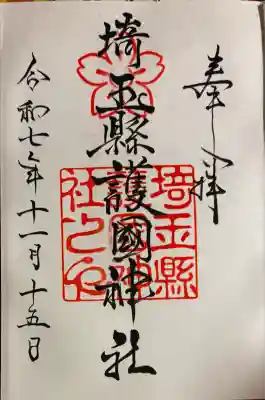 奉拝
埼玉縣護國神社
埼玉縣
護國神
社之印
令和七年十一月十五日